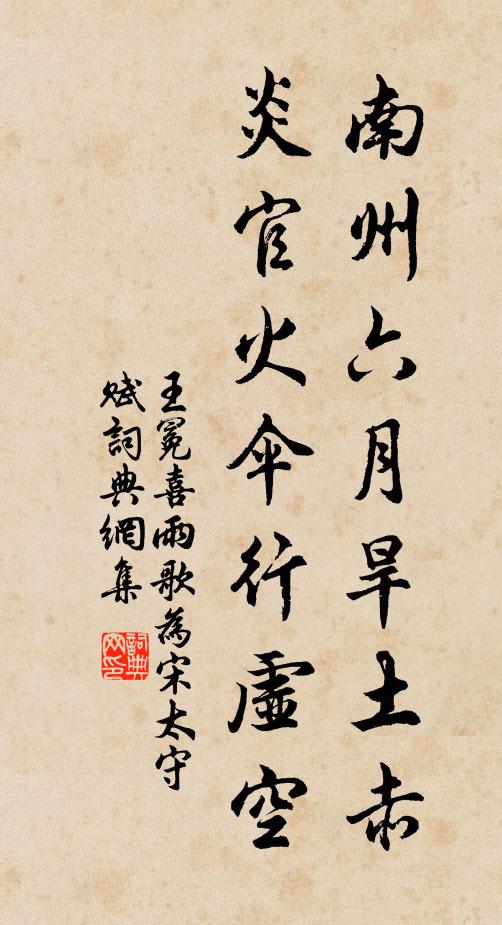 南州六月旱土赤
炎官火傘行虛空
王冕喜雨歌為宋太守
賦詞典網集
詞典
网印